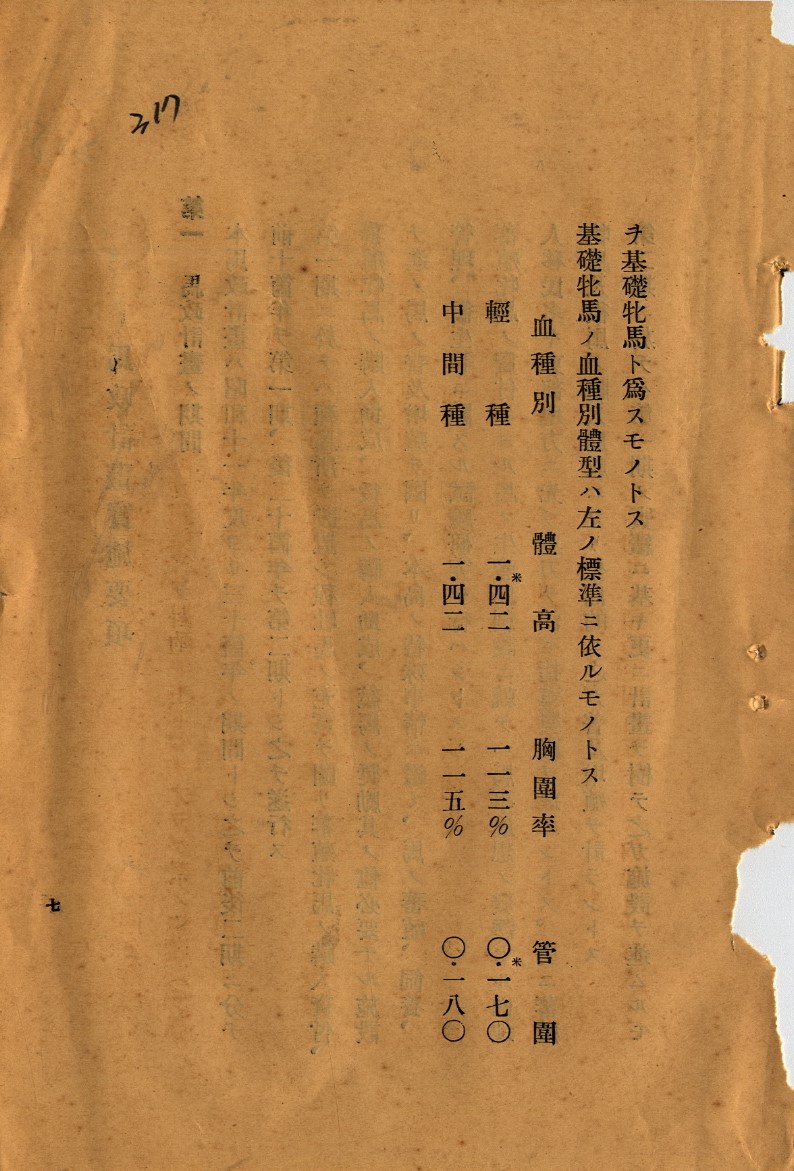 ヲ基礎牝馬ト爲スモノトス
基礎牝馬ノ血種別體型ハ左ノ標準ニ依ルモノトス
血種別 體高 胸圍率 管圍
輕種 一・四二米 一一三% 〇・一七〇米
中間種 一・四二 一一五% 〇・一八〇
七